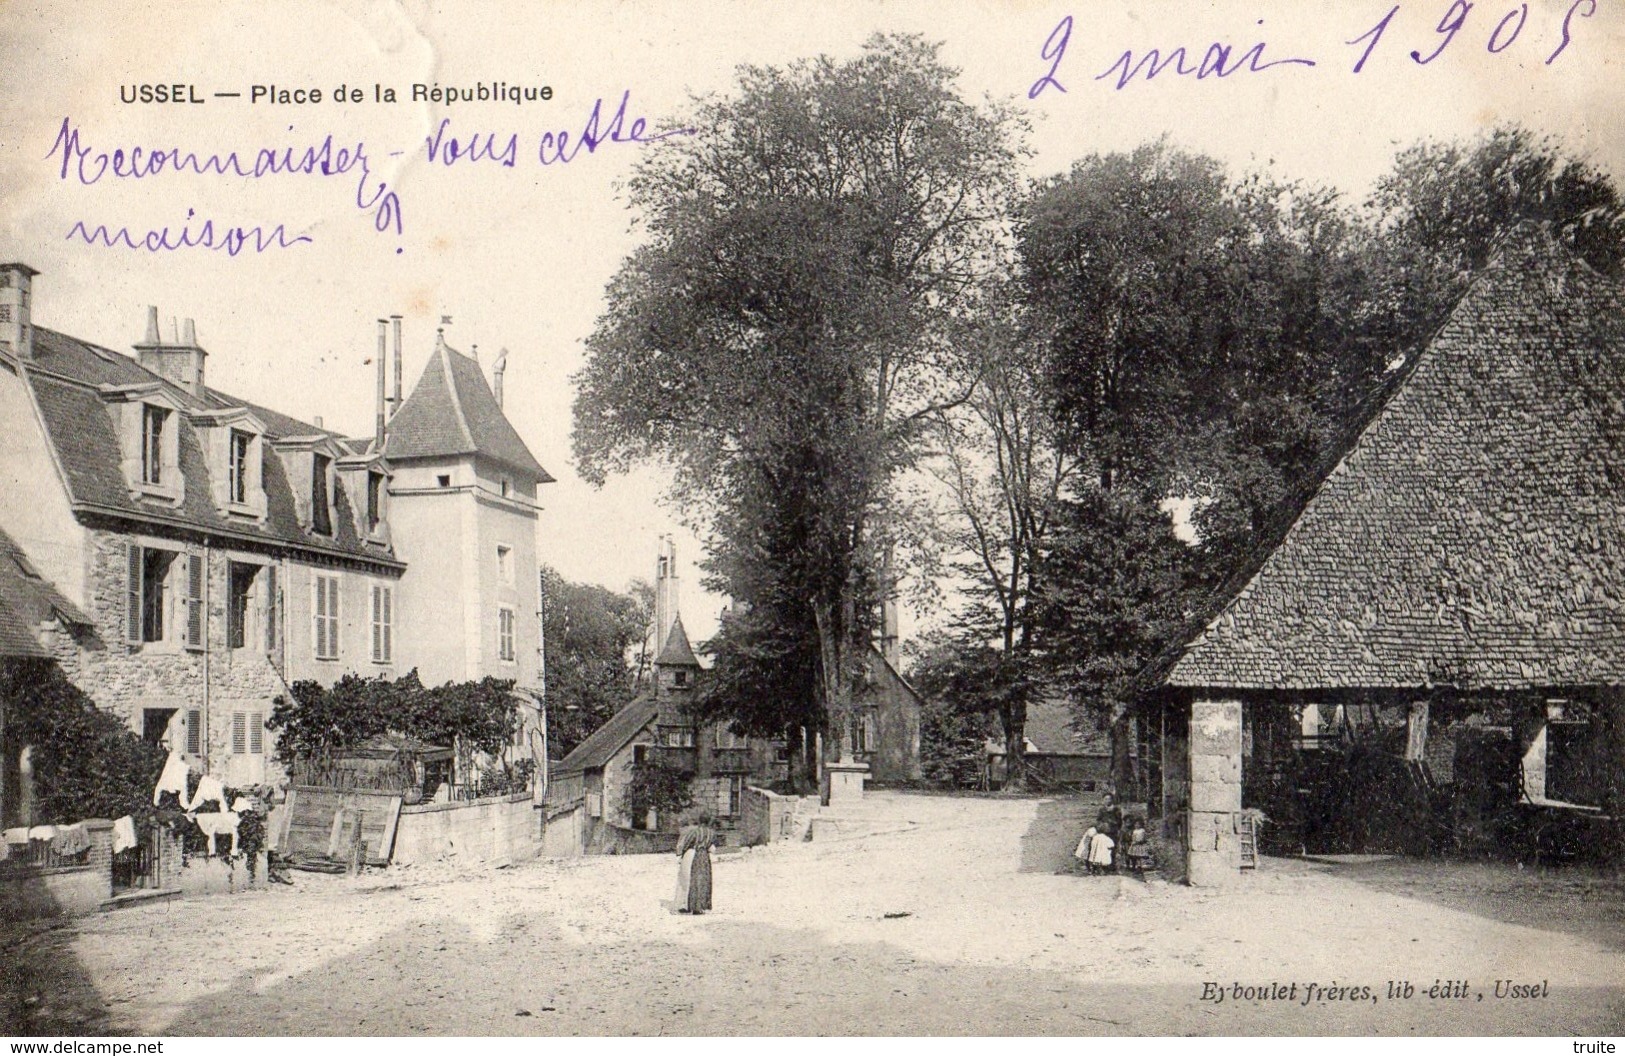 2 mai 1905
USSEL — Place de la République
Reconnaissez-vous cette
maison ?
Eyboulet frères, lib-édit, Ussel
www.delcampe.net
truite